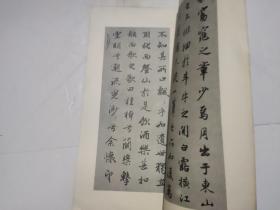 窈窕之章少焉月出于東山
之上徘徊於斗牛之間白露橫江
不知其所止飄乎如遺世獨立
羽化而登仙於是飲酒樂甚扣
舷而歌之歌曰桂棹兮蘭槳擊
空明兮泝流光渺兮余懷